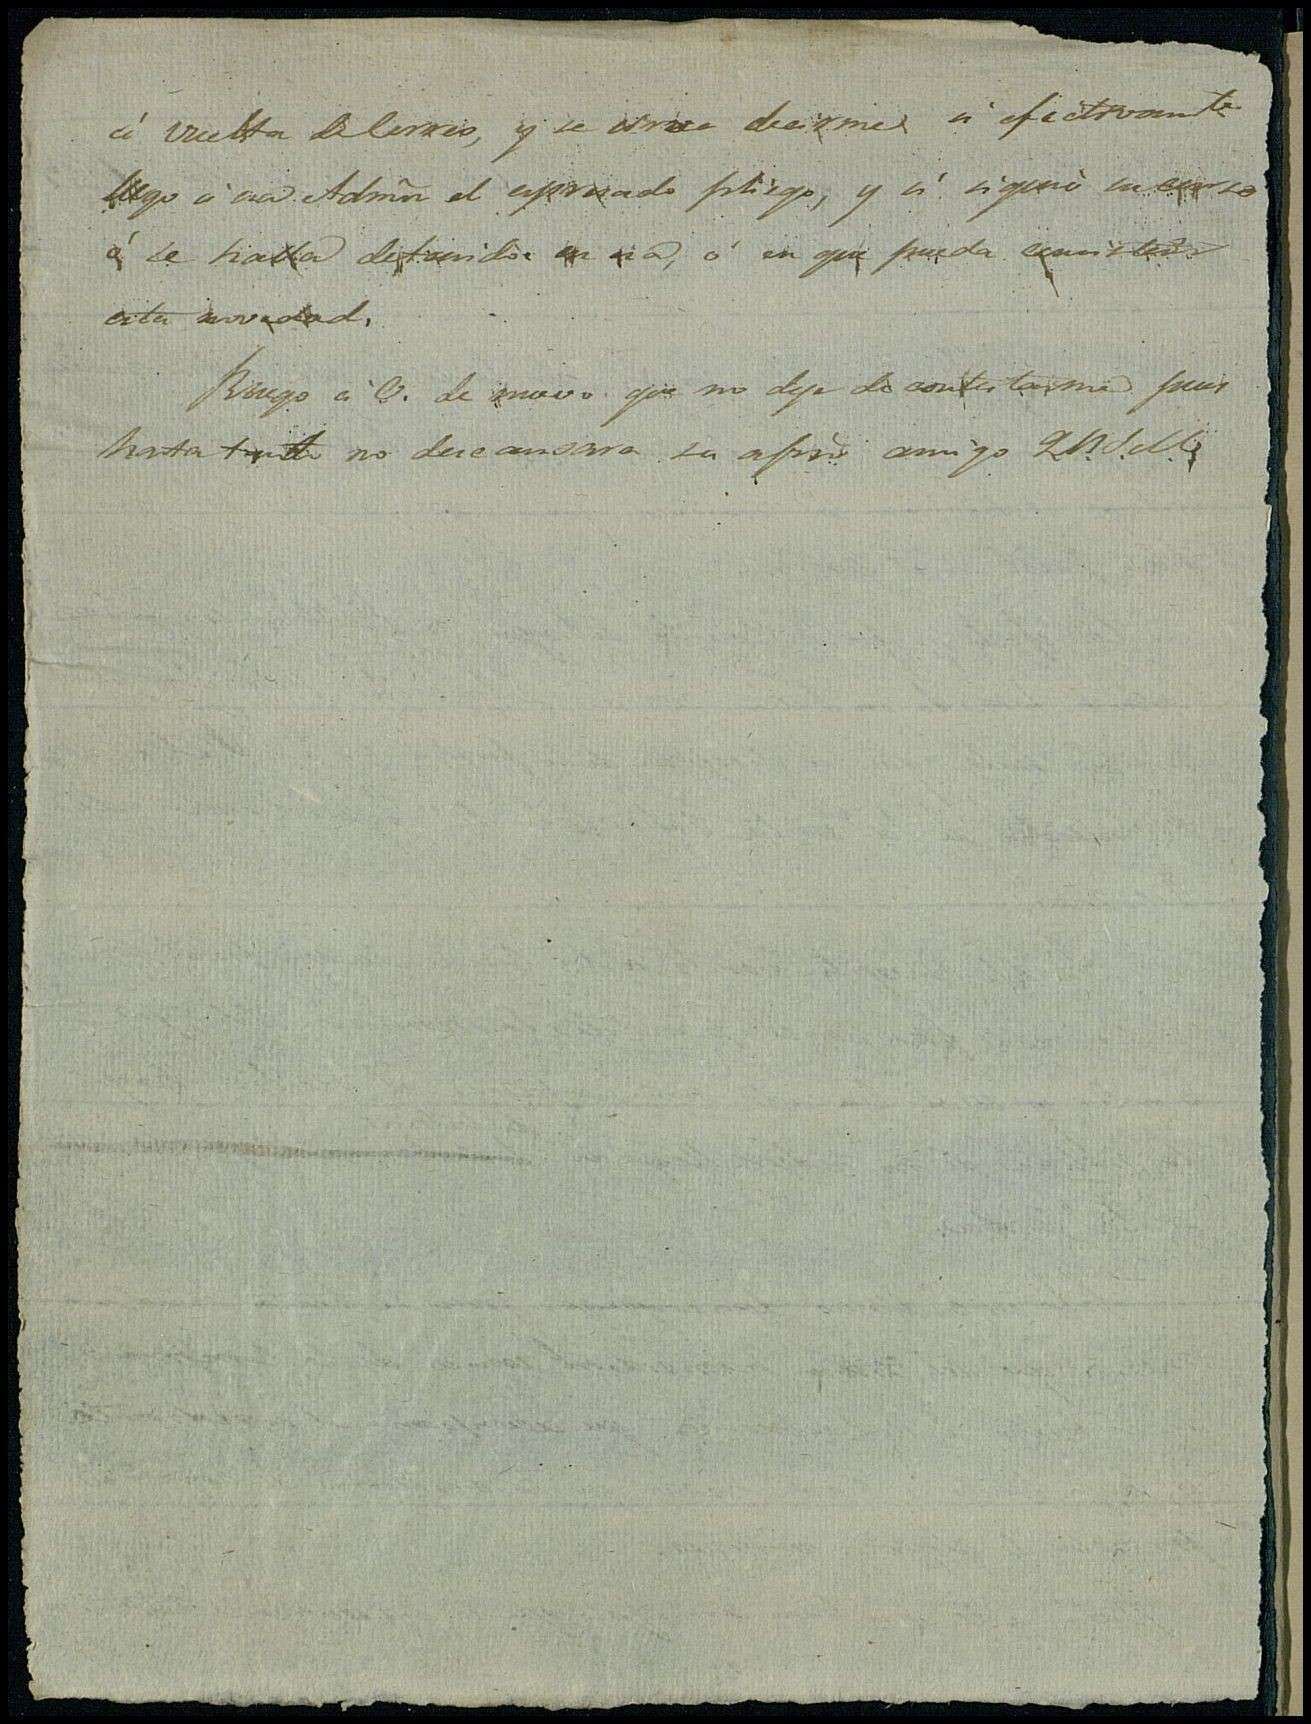 á vuelta de Correo, y se sirva decirme si efectivamte
llego á esa Admon el expresado pliego, y si siguió su curso
ó se halla detenido en esa, ó en que pueda consistir
esta novedad.
Ruego á V. de nuevo que no deje de contestarme pues
hasta tanto no descansara su afmo amigo Q.B.S.M.